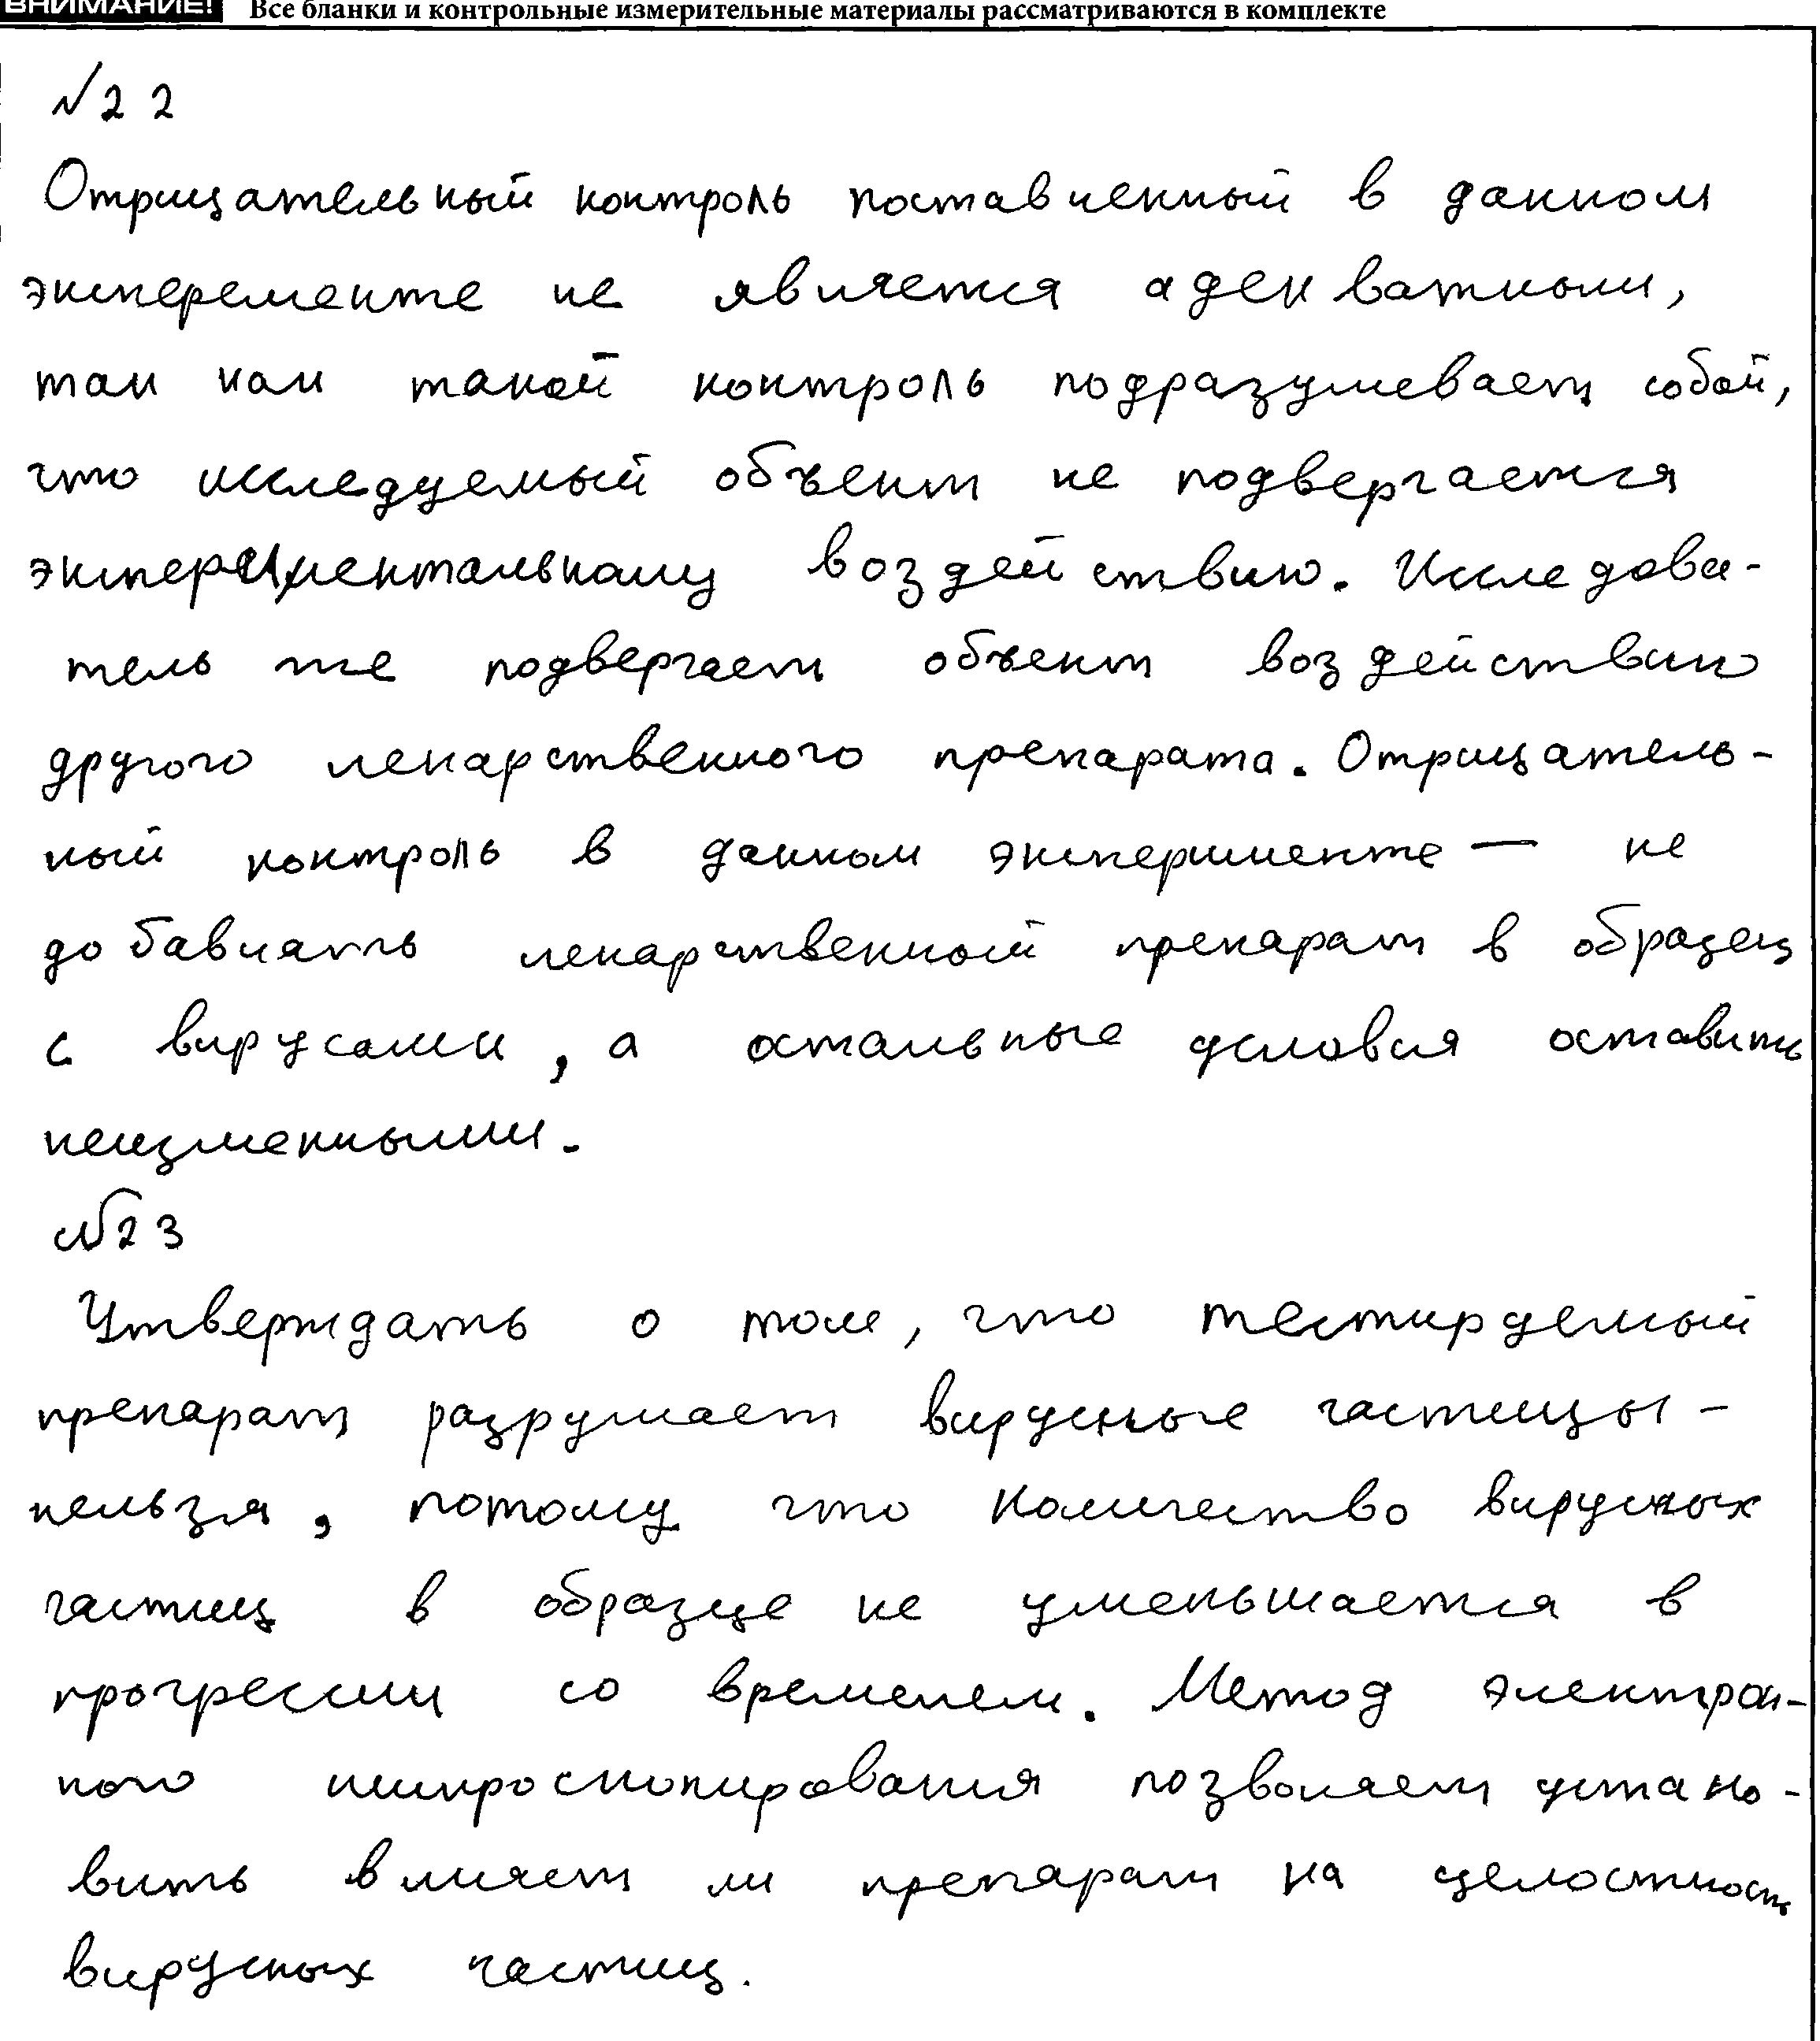 ВНИМАНИЕ! Все бланки и контрольные измерительные материалы рассматриваются в комплекте
№22
Отрицательный контроль поставленный в данном
эксперементе не является адекватным,
так как такой контроль подразумевает собой,
что исследуемый объект не подвергается
экспериментальному воздействию. Исследова-
тель же подвергает объект воздействию
другого лекарственного препарата. Отрицатель-
ный контроль в данном эксперименте — не
добавлять лекарственный препарат в образец
с вирусами, а остальные условия оставить
неизменными.
№23
Утверждать о том, что тестируемый
препарат разрушает вирусные частицы -
нельзя, потому что количество вирусных
частиц в образце не уменьшается в
прогрессии со временем. Метод электрон-
ного микроскопирования позволяет устано-
вить влияет ли препарат на целостность
вирусных частиц.